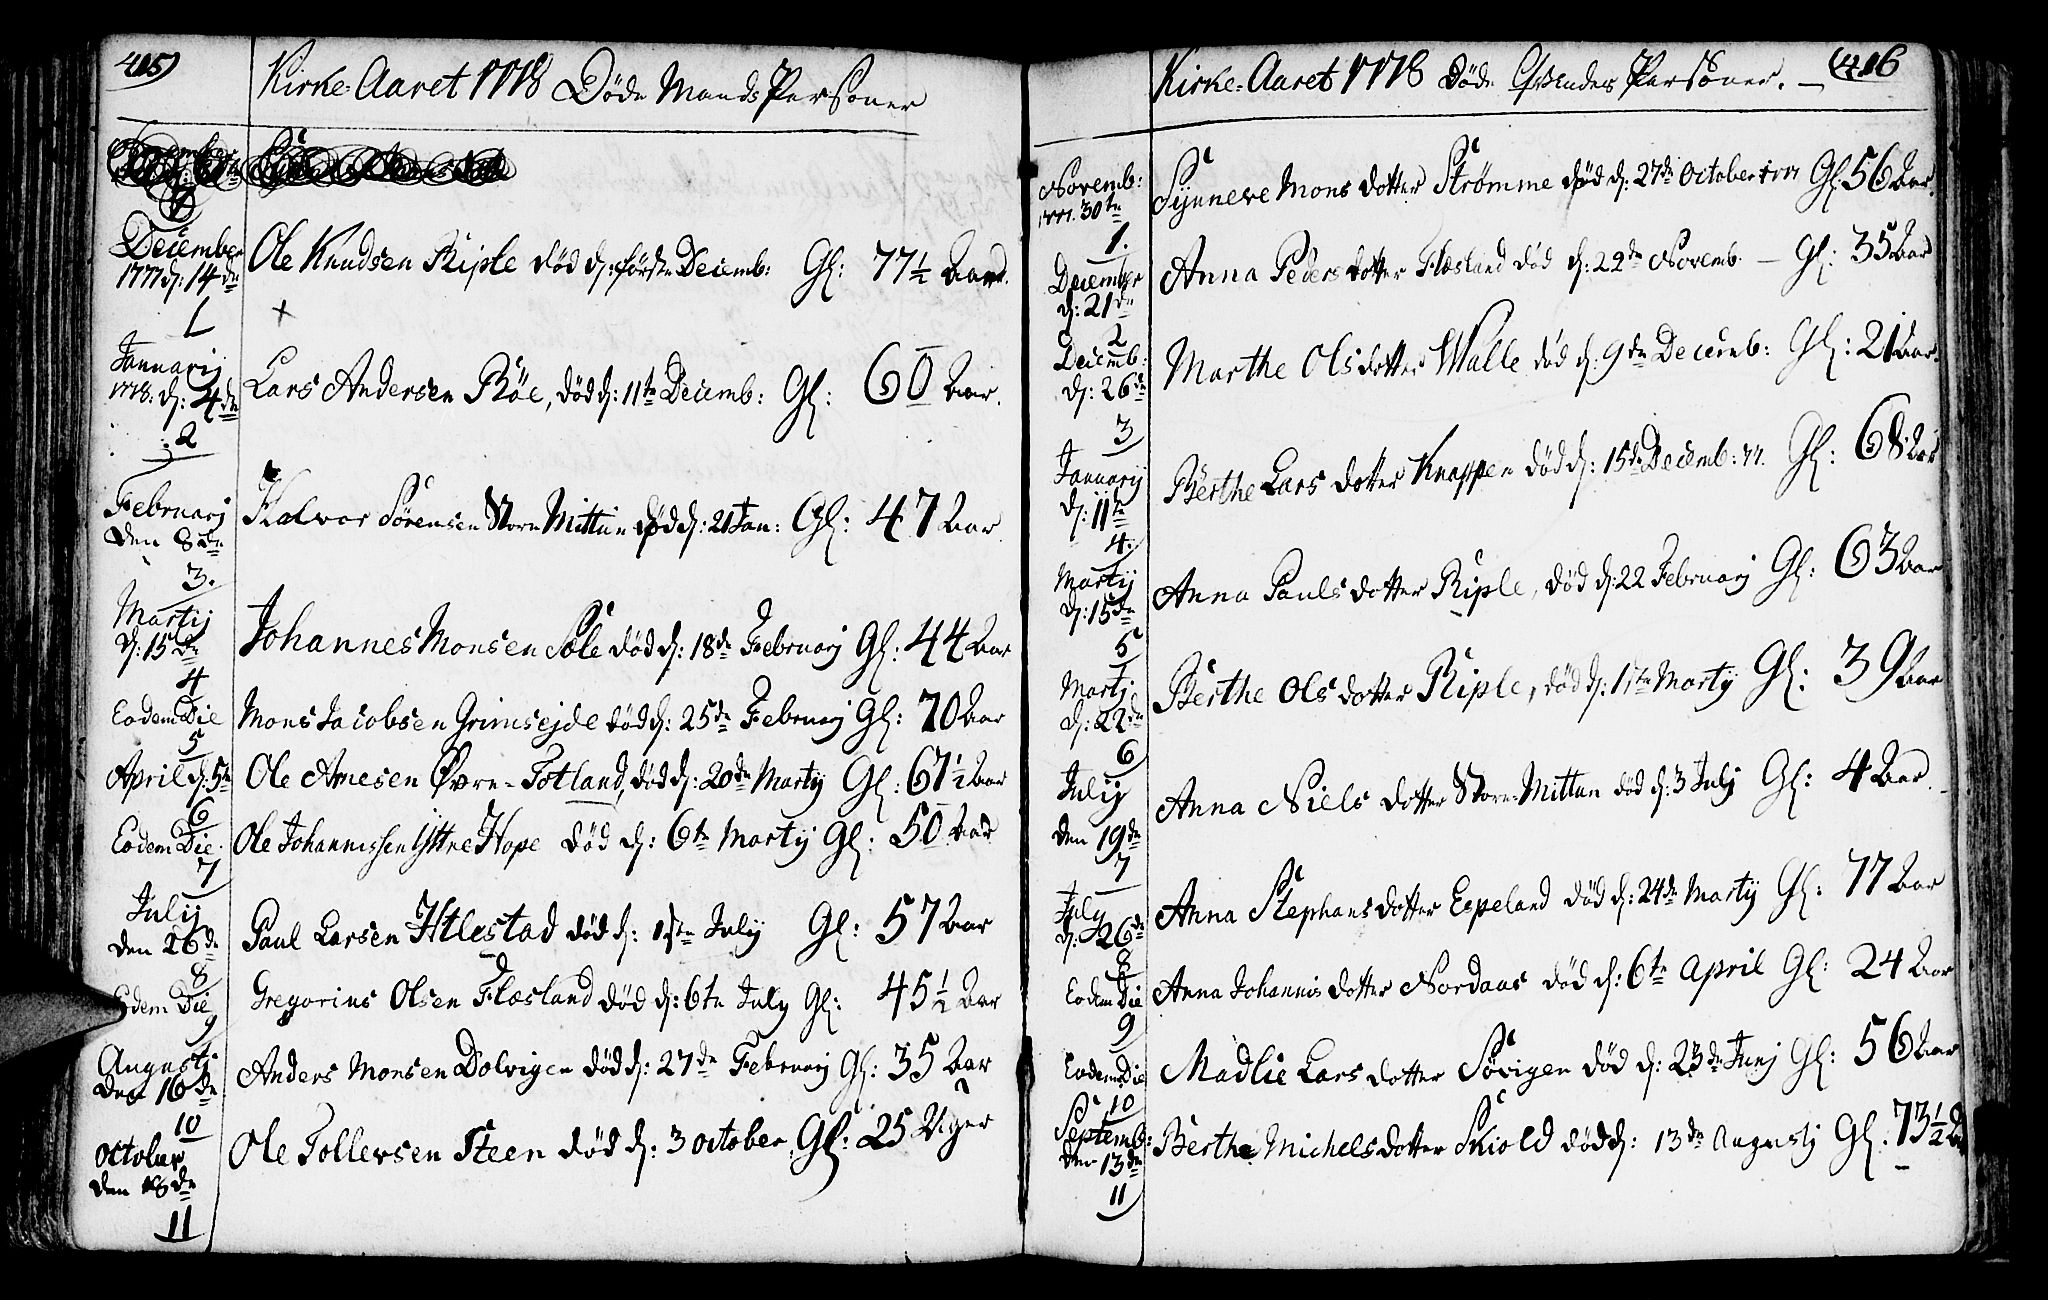 415)
Kirke-Aaret 1778 Døde Mands Personer
December
1777 d: 14de
Ole Knudsen Riple død d: første Decemb: Gl: 77½ Aar
1
+
Januarij
1778. d: 4de
Lars Andersen Röe, død d: 11te Decemb: Gl: 60 Aar.
2
Februarij
den 8de
Halvor Sörensen Store Mittun død d: 21 Jan: Gl: 47 Aar
3.
Martij
d: 15de
Johannes Monsen Söle død d: 18de Februarij Gl: 44 Aar
4
Eodem Die
Mons Jacobsen Grimsejde død d: 25de Februarij Gl: 70 Aar
5
April d: 5te
Ole Arnesen Øvre-Totland, død d: 20de Martij Gl: 67½ Aar
6
Eodem Die
Ole Johannissen Ÿttre Hope død d: 6te Martij Gl: 50 Aar
7
Julij
den 26de
Paul Larsen Titlestad død d: 1ste Julij Gl: 57 Aar
8
Eodem Die
Gregorius Olsen Flæsland død d: 6te Julij Gl: 45½ Aar
9
Augustj
den 16de
Anders Monsen Dolvigen død d: 27de Februarij Gl: 35 Aar
10
October
den 18de
Ole Tollevsen Steen død d: 3 October, Gl: 25 Uger
11
(416
Kirke-Aaret 1778 Døde Qvindes Personer. —
Novemb:
1777. 30te
Synneve Mons dotter Strömme død d: 27de October 1777 Gl: 56 Aar.
1.
December
d: 21de
Anna Peders dotter Flæsland død d: 22de Novemb. — Gl: 35 Aar
2
Decemb:
d: 26de
Marthe Ols dotter Walle død d: 9de Decemb: Gl: 21 Aar.
3
Januarij
d: 11te
Berthe Lars dotter Knappen død d: 15de Decemb: 77. Gl: 68 Aar
4.
Martij
d: 15de
Anna Pauls dotter Riple, død d: 22 Februarij Gl: 63 Aar
5
Martj
d: 22de
Berthe Ols dotter Riple, død d: 11te Martij Gl: 39 Aar
6
Julij
den 19de
Anna Niels dotter Store-Mittun død d: 3 Julij Gl: 4 Aar
7
Julij
d: 26de
Anna Stephans dotter Espeland død d: 24de Martij Gl: 77 Aar
8
Eodem Die
Anna Johannis dotter Nordaas død d: 6te April Gl: 24 Aar
9
Eodem Die
Madlie Lars dotter Sövigen død d: 23de Junj Gl: 56 Aar
10
Septemb:
den 13de
Berthe Michels dotter Skiold død d: 13de Augustj Gl. 73½
11